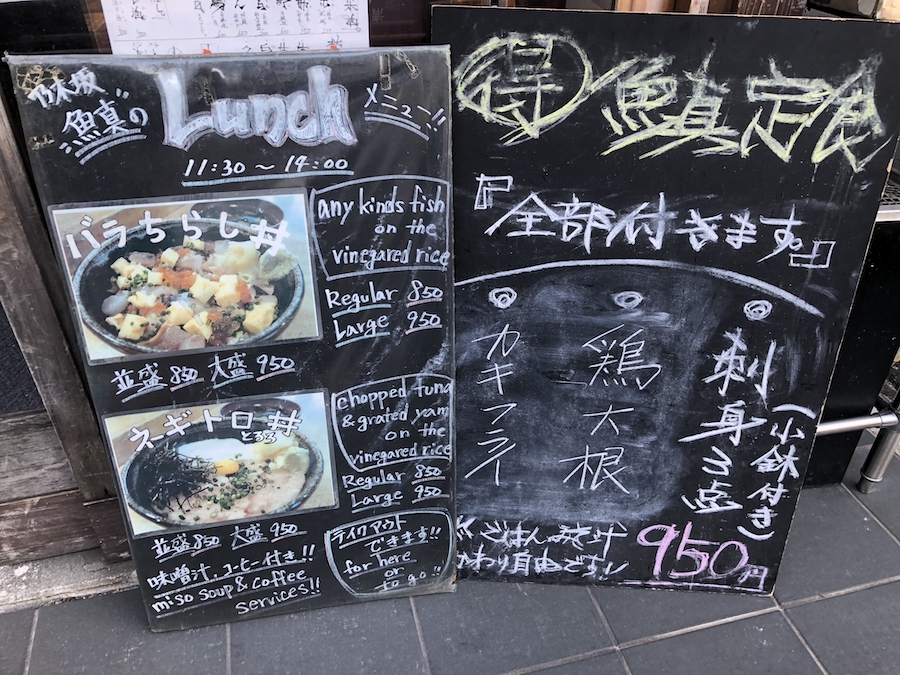 乃木坂
魚真の
Lunch
メニュー!!
11:30 〜 14:00
バラちらし丼
any kinds fish
on the
vinegared rice
Regular 850
Large 950
並盛 850 大盛 950
ネギトロ丼
とろろ
chopped tuna
& grated yam
on the
vinegared rice
Regular 850
Large 950
並盛 850 大盛 950
味噌汁、コーヒー付き!!
miso soup & coffee
services!!
テイクアウト
できます!!
for here
or
to go!!
得 魚真定食
『全部付きます。』
刺身3点
(小鉢付き)
鶏大根
カキフライ
ごはん みそ汁
かわり自由です!
950円